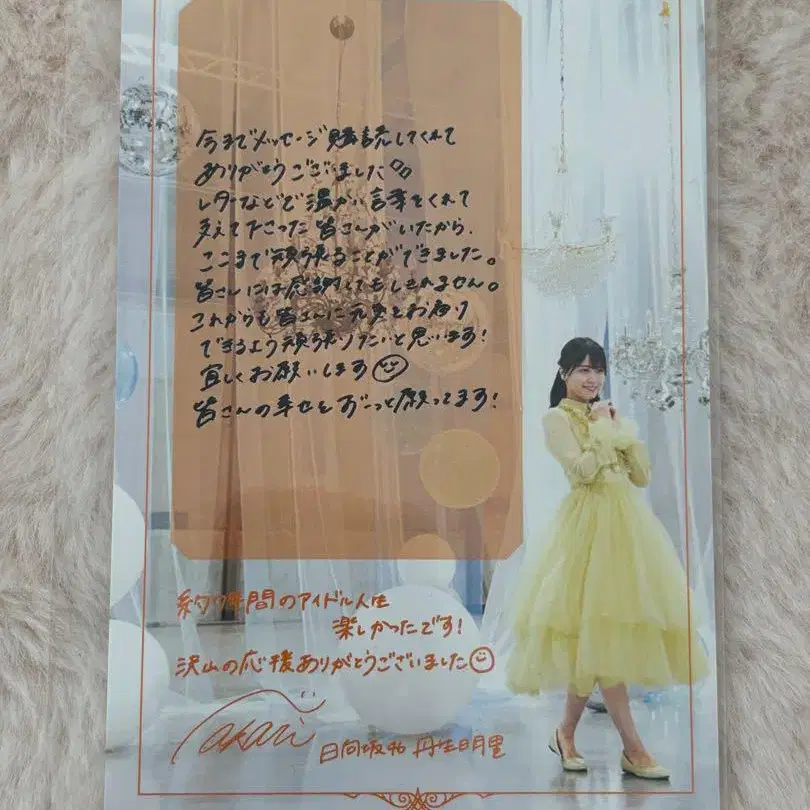 今までメッセージ購読してくれて
ありがとうございました
レターなどで温かい言葉をくれて
支えて下さった皆さんがいたから、
ここまで頑張ることができました。
皆さんには感謝してもしきれません。
これからも皆さんに元気をお届け
できるよう頑張りたいと思います!
宜しくお願いします
皆さんの幸せをずーっと願ってます!
約7年間のアイドル人生
楽しかったです!
沢山の応援ありがとうございました
Akari
日向坂46 丹生明里